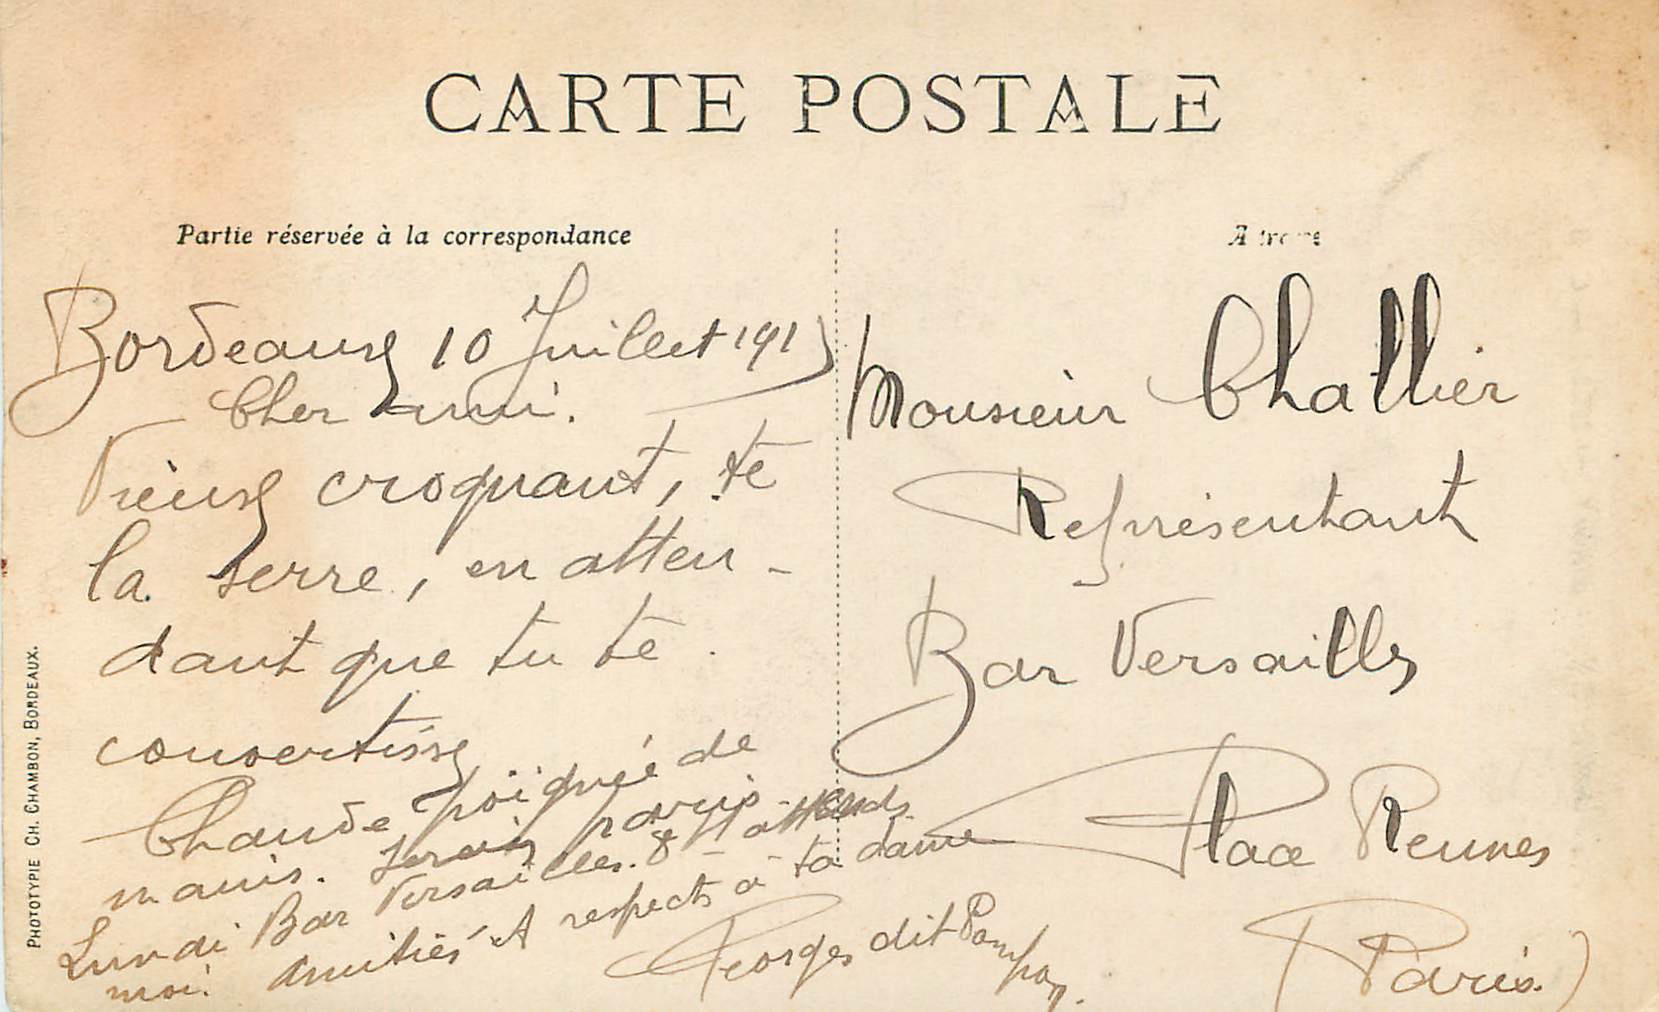 CARTE POSTALE
Partie réservée à la correspondance
Bordeaux 10 Juillet 1915
Cher ami.
Vieux croquant, te
la serre, en atten-
dant que tu te
convertisse
Chaude poignée de
mains. Serais Paris
Lundi Bar Versailles. 8 H attends
moi. Amitiés et respects à ta dame
Georges dit Pompon.
Monsieur Challier
Représentant
Bar Versailles
Place Rennes
(Paris)
PHOTOTYPIE CH. CHAMBON, BORDEAUX.